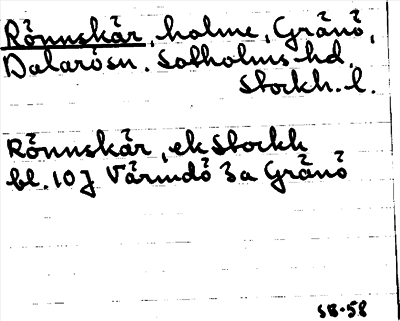 Rönnskär, holme, Gränö,
Dalarösn. Sotholms hd.
Stockh. l.
Rönnskär, ek Stockh
bl. 107 Värmdö 3a Gränö
SB-58